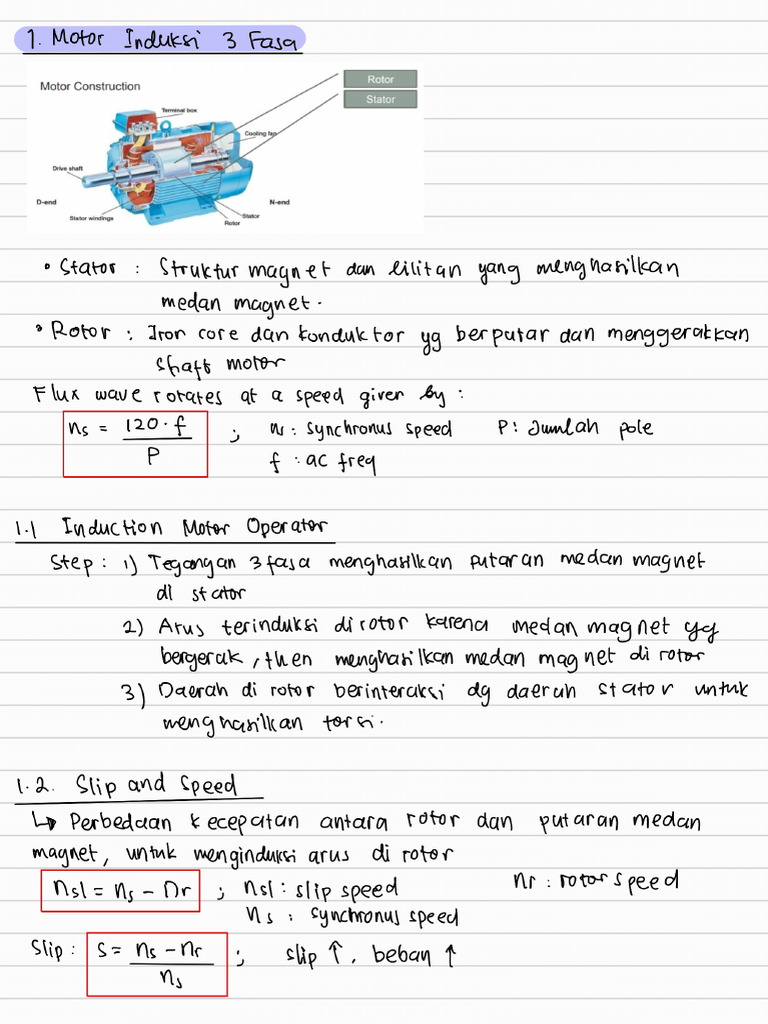 1. Motor Induksi 3 Fasa
Motor Construction
Rotor
Stator
Terminal box
Cooling fan
Drive shaft
D-end
N-end
Stator windings
Stator
Rotor
• Stator : Struktur magnet dan lilitan yang menghasilkan
medan magnet.
• Rotor : Iron core dan konduktor yg berputar dan menggerakkan
shaft motor
Flux wave rotates at a speed given by :
ns = 120 · f / P ; ns : synchronus speed P : Jumlah pole
f : ac freq
1.1 Induction Motor Operator
Step : 1) Tegangan 3 fasa menghasilkan putaran medan magnet
di stator
2) Arus terinduksi di rotor karena medan magnet yg
bergerak, then menghasilkan medan magnet di rotor
3) Daerah di rotor berinteraksi dg daerah stator untuk
menghasilkan torsi.
1.2. Slip and Speed
↳ Perbedaan kecepatan antara rotor dan putaran medan
magnet, untuk menginduksi arus di rotor
nsl = ns - nr ; nsl : slip speed nr : rotor speed
ns : synchronus speed
Slip : s = ns - nr / ns ; slip ↑, beban ↑